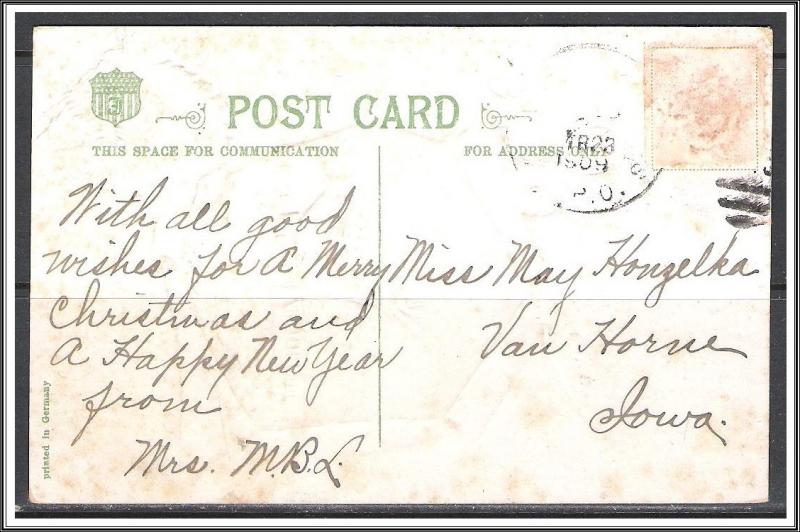 POST CARD
THIS SPACE FOR COMMUNICATION
FOR ADDRESS ONLY
23
1909
P.O.
With all good
wishes for a Merry
Christmas and
A Happy New Year
from
Mrs. M.B.L.
Miss May Honzelka
Van Horne
Iowa.
printed in Germany